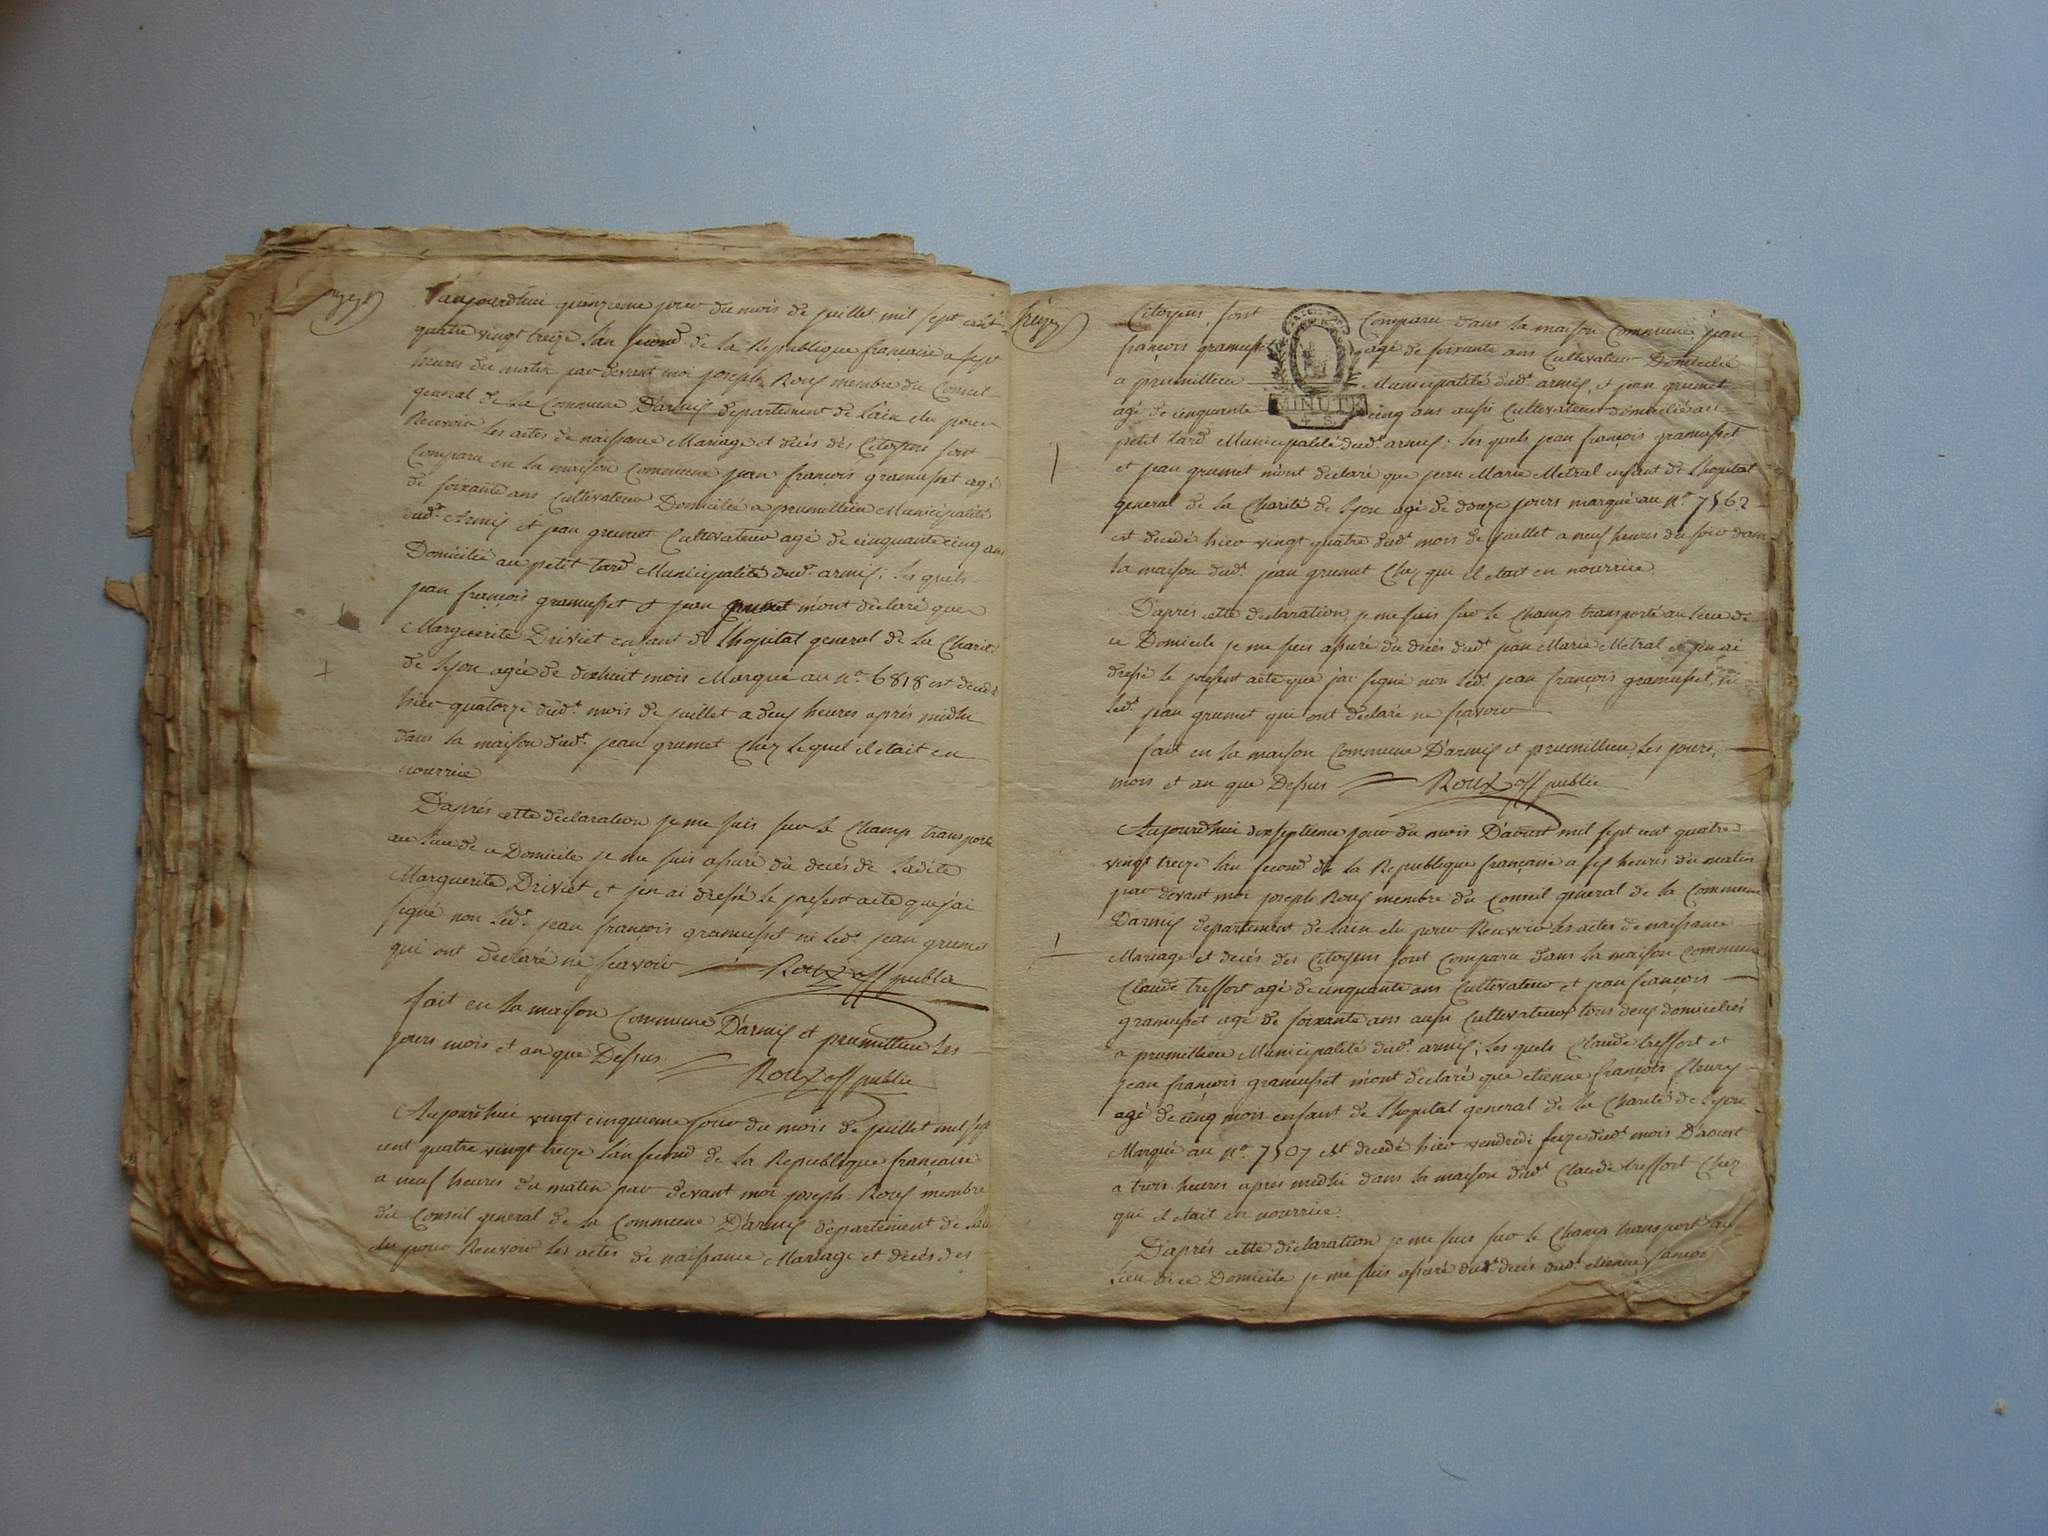 aujourdhui quinzieme jour du mois de juillet mil sept cent
quatre vingt treize l'an second de la Republique francaise a sept
heures du matin par devant moi joseph Roux membre du Conseil
general de la Commune D'armis departement de l'ain elu pour
Recevoir les actes de naissance Mariage et décès des Citoyens sont
Comparu en la maison Commune jean françois gramusset agé
de soixante ans Cultivateur Domicilié a prumillieu Municipalité
dudt armis et jean grumet Cultivateur agé de cinquante cinq ans
Domicilié au petit tard Municipalité dudt armis; les quels
jean françois gramusset et jean grumet m'ont déclaré que
Marguerite Driviet enfant de l'hopital general de la Charité
de lyon agée de dixhuit mois Marqué au no 6818 est decedé
hier quatorze dudt mois de juillet a deux heures après midhi
dans la maison dudt jean grumet Chez lequel il etait en
nourrice
D'après cette déclaration je me suis sur le Champ transporté
au lieu de ce Domicile je me suis assuré du decés de ladite
Marguerite Driviet et j'en ai dressé le present acte que j'ai
signé non ledt jean françois gramusset ni ledt jean grumet
qui ont declaré ne scavoir Roux off public
fait en la maison Commune D'armis et prumillieu les
jours mois et an que Dessus Roux off public
Aujourdhui vingt cinquieme jour du mois de juillet mil sept
cent quatre vingt treize l'an second de la Republique française
a neuf heures du matin par devant moi joseph Roux membre
du Conseil general de la Commune D'armis departement de l'ain
elu pour Recevoir les actes de naissance Mariage et décès des
Citoyens sont Comparu dans la maison Commune jean
françois gramusset agé de soixante ans Cultivateur Domicilié
a prumillieu Municipalité dudt armis et jean grumet
MINUTE
agé de cinquante cinq ans aussi Cultivateur domicilié au
petit tard Municipalité dudt armis; les quels jean françois gramusset
et jean grumet m'ont declaré que jean Marie Metral enfant de l'hopital
general de la Charité de lyon agé de douze jours marqué au no 7562
est decedé hier vingt quatre dudt mois de juillet a neuf heures du soir dans
la maison dudt jean grumet Chez qui il etait en nourrice
D'après cette declaration, je me suis sur le Champ transporté au lieu de
ce Domicile je me suis assuré du décés dudt jean Marie Metral et j'en ai
dressé le present acte que j'ai signé non ledt jean françois gramusset, ni
ledt jean grumet qui ont déclaré ne sçavoir
fait en la maison Commune D'armis et prumillieu, les jours,
mois et an que Dessus Roux off public
Aujourdhui dix septieme jour du mois D'aoust mil sept cent quatre
vingt treize l'an second de la Republique française a six heures du matin
par devant moi joseph Roux membre du Conseil general de la Commune
Darmis departement de l'ain elu pour Recevoir les actes de naissance
Mariage et decés des Citoyens sont comparu dans la maison Commune
Claude treffort agé de cinquante ans Cultivateur et jean françois
gramusset agé de soixante ans aussi Cultivateur tous deux domiciliés
a prumillieu Municipalité dudt armis; les quels Claude treffort et
jean françois gramusset m'ont declaré que etienne françois fleury
agé de cinq mois enfant de l'hopital general de la Charité de lyon
Marqué au no 7507 est decedé hier vendredi seize dudt mois D'aoust
a trois heures apres midhi dans la maison dudt Claude treffort Chez
qui il etait en nourrice.
D'après cette déclaration je me suis sur le Champ transporté au
lieu de ce Domicile je me suis assuré du decés dudt etienne françois